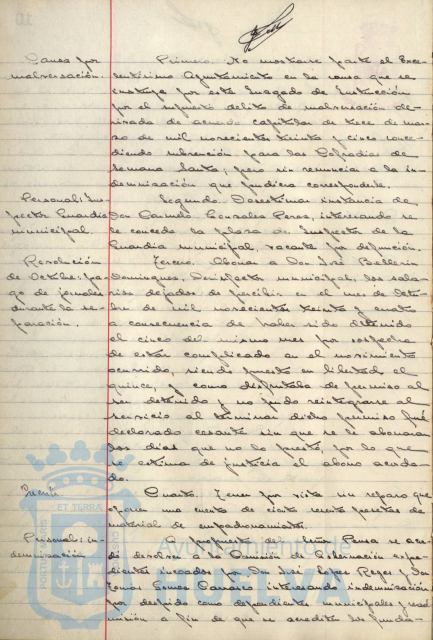 Causa por
malversación.
Primero. No mostrarse parte el Exce-
lentísimo Ayuntamiento en la causa que se
instruye por este Juzgado de Instrucción
por el supuesto delito de malversación de-
rivada de acuerdo capitular de trece de mar-
zo de mil novecientos treinta y cinco conce-
diendo subvención para las Cofradías de
Semana Santa, pero sin renunciar a la in-
demnización que pudiera corresponderle.
Personal: Ins-
pector Guardia
municipal.
Segundo. Desestimar instancia de
Don Carmelo Gonzales Peras, interesando se
le conceda la plaza de Inspector de la
Guardia municipal, vacante por defunción.
Revolución
de Octubre: pa-
go de jornales
durante la se-
paración.
Tercero. Abonar a Don José Ballerín
Domínguez, Desinfector municipal, los sala-
rios dejados de percibir en el mes de Octu-
bre de mil novecientos treinta y cuatro
a consecuencia de haber sido detenido
el cinco del mismo mes por sospecha
de estar complicado en el movimiento
ocurrido, siendo puesto en libertad el
quince, y como disfrutaba de permiso al
ser detenido y no pudo reintegrarse al
servicio al terminar dicho permiso fué
declarado cesante sin que se le abonaran
los días que no lo prestó, por lo que
se estima de justicia el abono acorda-
do.
Cuenta
Cuarto. Tener por vista sin reparo que
oponer una cuenta de ciento veinte pesetas de
material de empadronamiento.
Personal: in-
demnización
A propuesta del Señor Ponsa se acor-
dó devolver a la Comisión de Gobernación expe-
dientes incoados por Don José Lopez Reyes y Don
Tomas Gomez interesando indemnización
por despido como dependientes municipales y read-
misión a fin de que se acredite los funda-
PORTUS
ET TERRAE
Ayuntamiento de
HUELVA